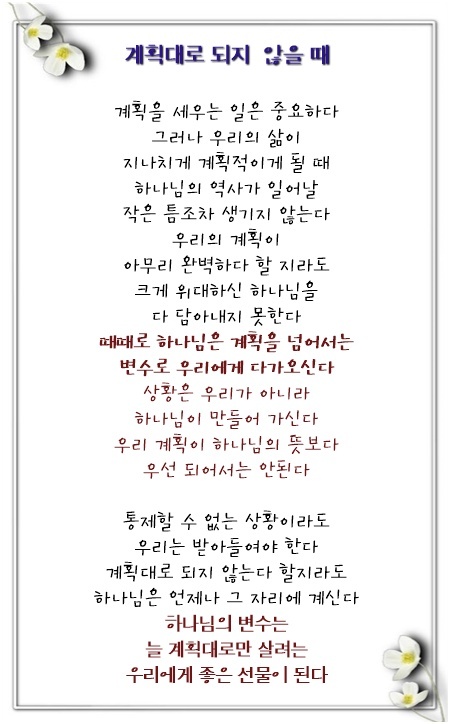 계획대로 되지 않을 때
계획을 세우는 일은 중요하다
그러나 우리의 삶이
지나치게 계획적이게 될 때
하나님의 역사가 일어날
작은 틈조차 생기지 않는다
우리의 계획이
아무리 완벽하다 할 지라도
크게 위대하신 하나님을
다 담아내지 못한다
때때로 하나님은 계획을 넘어서는
변수로 우리에게 다가오신다
상황은 우리가 아니라
하나님이 만들어 가신다
우리 계획이 하나님의 뜻보다
우선 되어서는 안된다
통제할 수 없는 상황이라도
우리는 받아들여야 한다
계획대로 되지 않는다 할지라도
하나님은 언제나 그 자리에 계신다
하나님의 변수는
늘 계획대로만 살려는
우리에게 좋은 선물이 된다